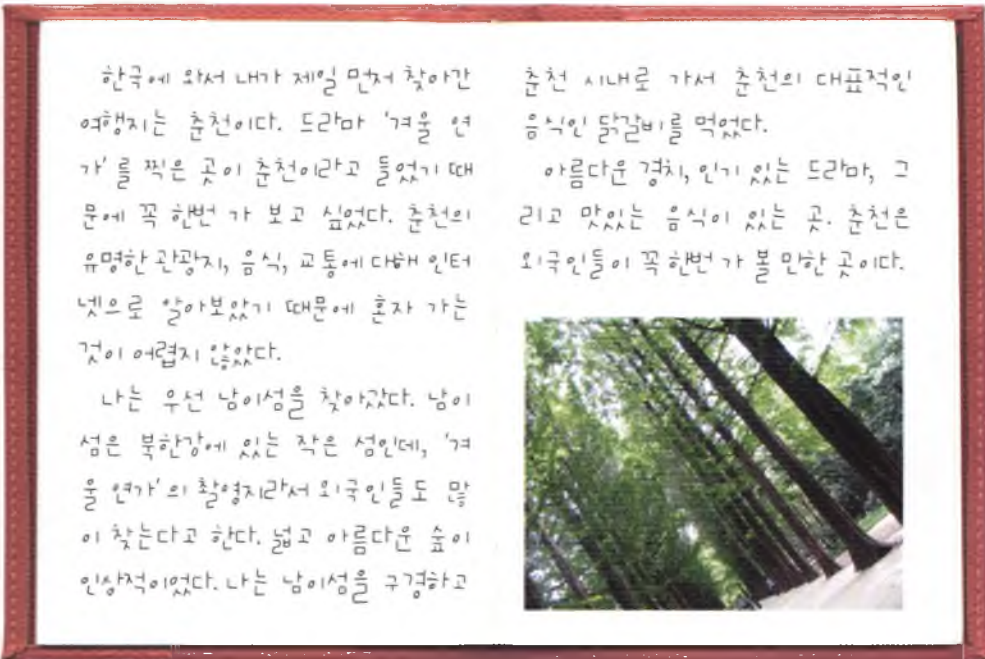 한국에 와서 내가 제일 먼저 찾아간
여행지는 춘천이다. 드라마 '겨울 연
가'를 찍은 곳이 춘천이라고 들었기 때
문에 꼭 한번 가 보고 싶었다. 춘천의
유명한 관광지, 음식, 교통에 대해 인터
넷으로 알아보았기 때문에 혼자 가는
것이 어렵지 않았다.
나는 우선 남이섬을 찾아갔다. 남이
섬은 북한강에 있는 작은 섬인데, '겨
울 연가'의 촬영지라서 외국인들도 많
이 찾는다고 한다. 넓고 아름다운 숲이
인상적이었다. 나는 남이섬을 구경하고
춘천 시내로 가서 춘천의 대표적인
음식인 닭갈비를 먹었다.
아름다운 경치, 인기 있는 드라마, 그
리고 맛있는 음식이 있는 곳. 춘천은
외국인들이 꼭 한번 가 볼 만한 곳이다.